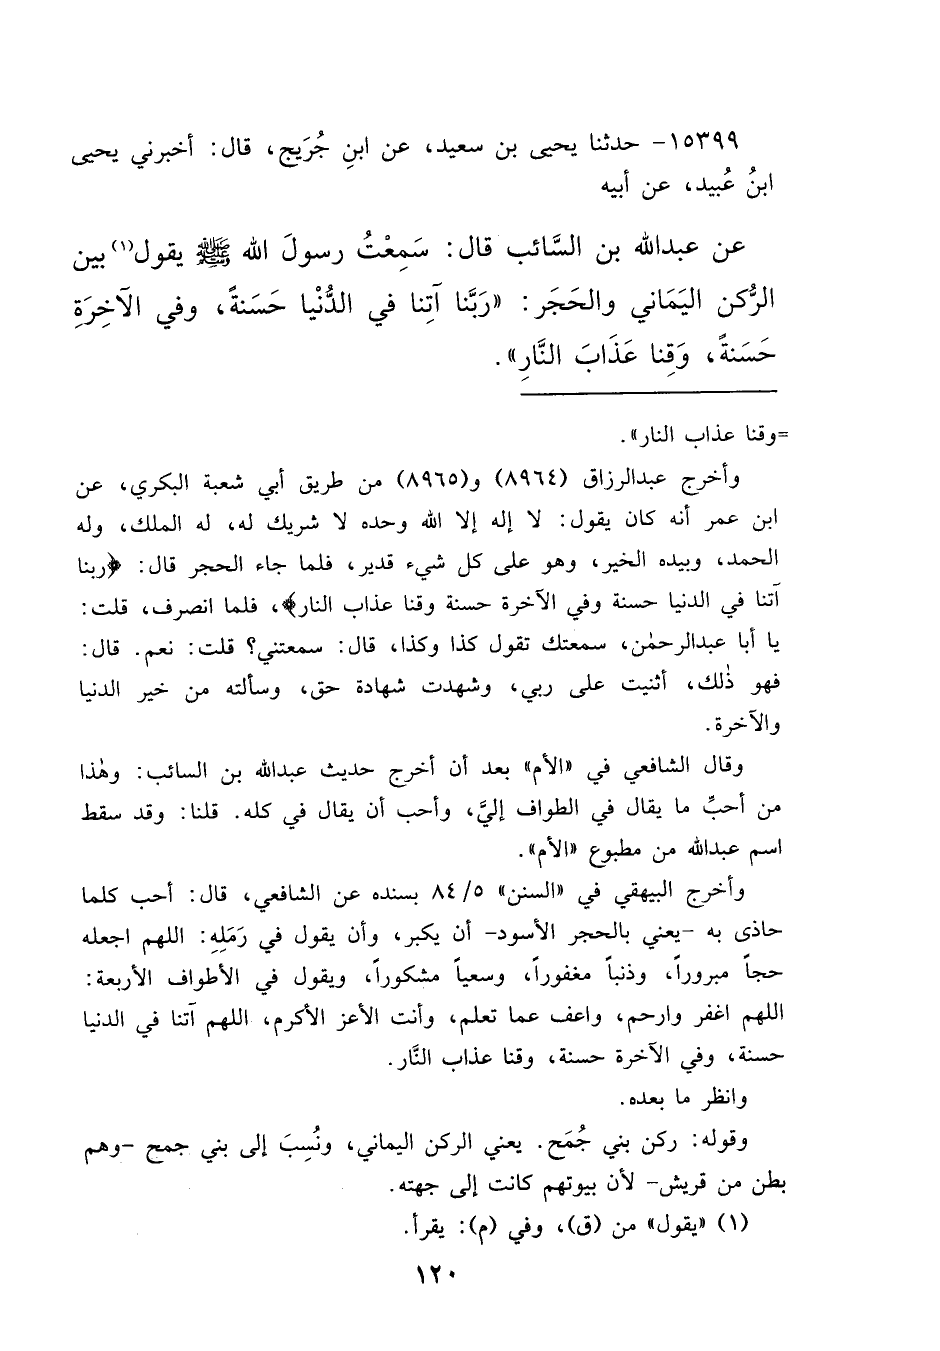 ١٥٣٩٩- حدثنا يحيى بن سعيد، عن ابنِ جُرَيج، قال: أخبرني يحيى
ابنُ عُبيد، عن أبيه
عن عبدالله بن السَّائب قال: سَمِعْتُ رسولَ الله ﷺ يقول(١) بين
الرُّكن اليَمَاني والحَجَر: «رَبَّنا آتِنا في الدُّنْيا حَسَنةً، وفي الآخِرَةِ
حَسَنةً، وَقِنا عَذَابَ النَّارِ».
=وقنا عذاب النار».
وأخرج عبدالرزاق (٨٩٦٤) و(٨٩٦٥) من طريق أبي شعبة البكري، عن
ابن عمر أنه كان يقول: لا إله إلا الله وحده لا شريك له، له الملك، وله
الحمد، وبيده الخير، وهو على كل شيء قدير، فلما جاء الحجر قال: ﴿ربنا
آتنا في الدنيا حسنة وفي الآخرة حسنة وقنا عذاب النار﴾، فلما انصرف، قلت:
يا أبا عبدالرحمٰن، سمعتك تقول كذا وكذا، قال: سمعتني؟ قلت: نعم. قال:
فهو ذٰلك، أثنيت على ربي، وشهدت شهادة حق، وسألته من خير الدنيا
والآخرة.
وقال الشافعي في «الأم» بعد أن أخرج حديث عبدالله بن السائب: وهٰذا
من أحبِّ ما يقال في الطواف إليَّ، وأحب أن يقال في كله. قلنا: وقد سقط
اسم عبدالله من مطبوع «الأم».
وأخرج البيهقي في «السنن» ٨٤/٥ بسنده عن الشافعي، قال: أحب كلما
حاذى به -يعني بالحجر الأسود- أن يكبر، وأن يقول في رَمَلِهِ: اللهم اجعله
حجاً مبروراً، وذنباً مغفوراً، وسعياً مشكوراً، ويقول في الأطواف الأربعة:
اللهم اغفر وارحم، واعف عما تعلم، وأنت الأعز الأكرم، اللهم آتنا في الدنيا
حسنة، وفي الآخرة حسنة، وقنا عذاب النَّار.
وانظر ما بعده.
وقوله: ركن بني جُمَح. يعني الركن اليماني، ونُسِبَ إلى بني جمح -وهم
بطن من قريش- لأن بيوتهم كانت إلى جهته.
(١) «يقول» من (ق)، وفي (م): يقرأ.
١٢٠